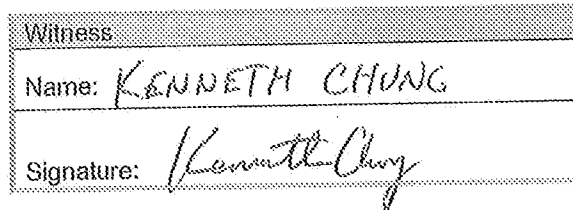 Witness
Name: KENNETH CHUNG
Signature: Kenneth Chung